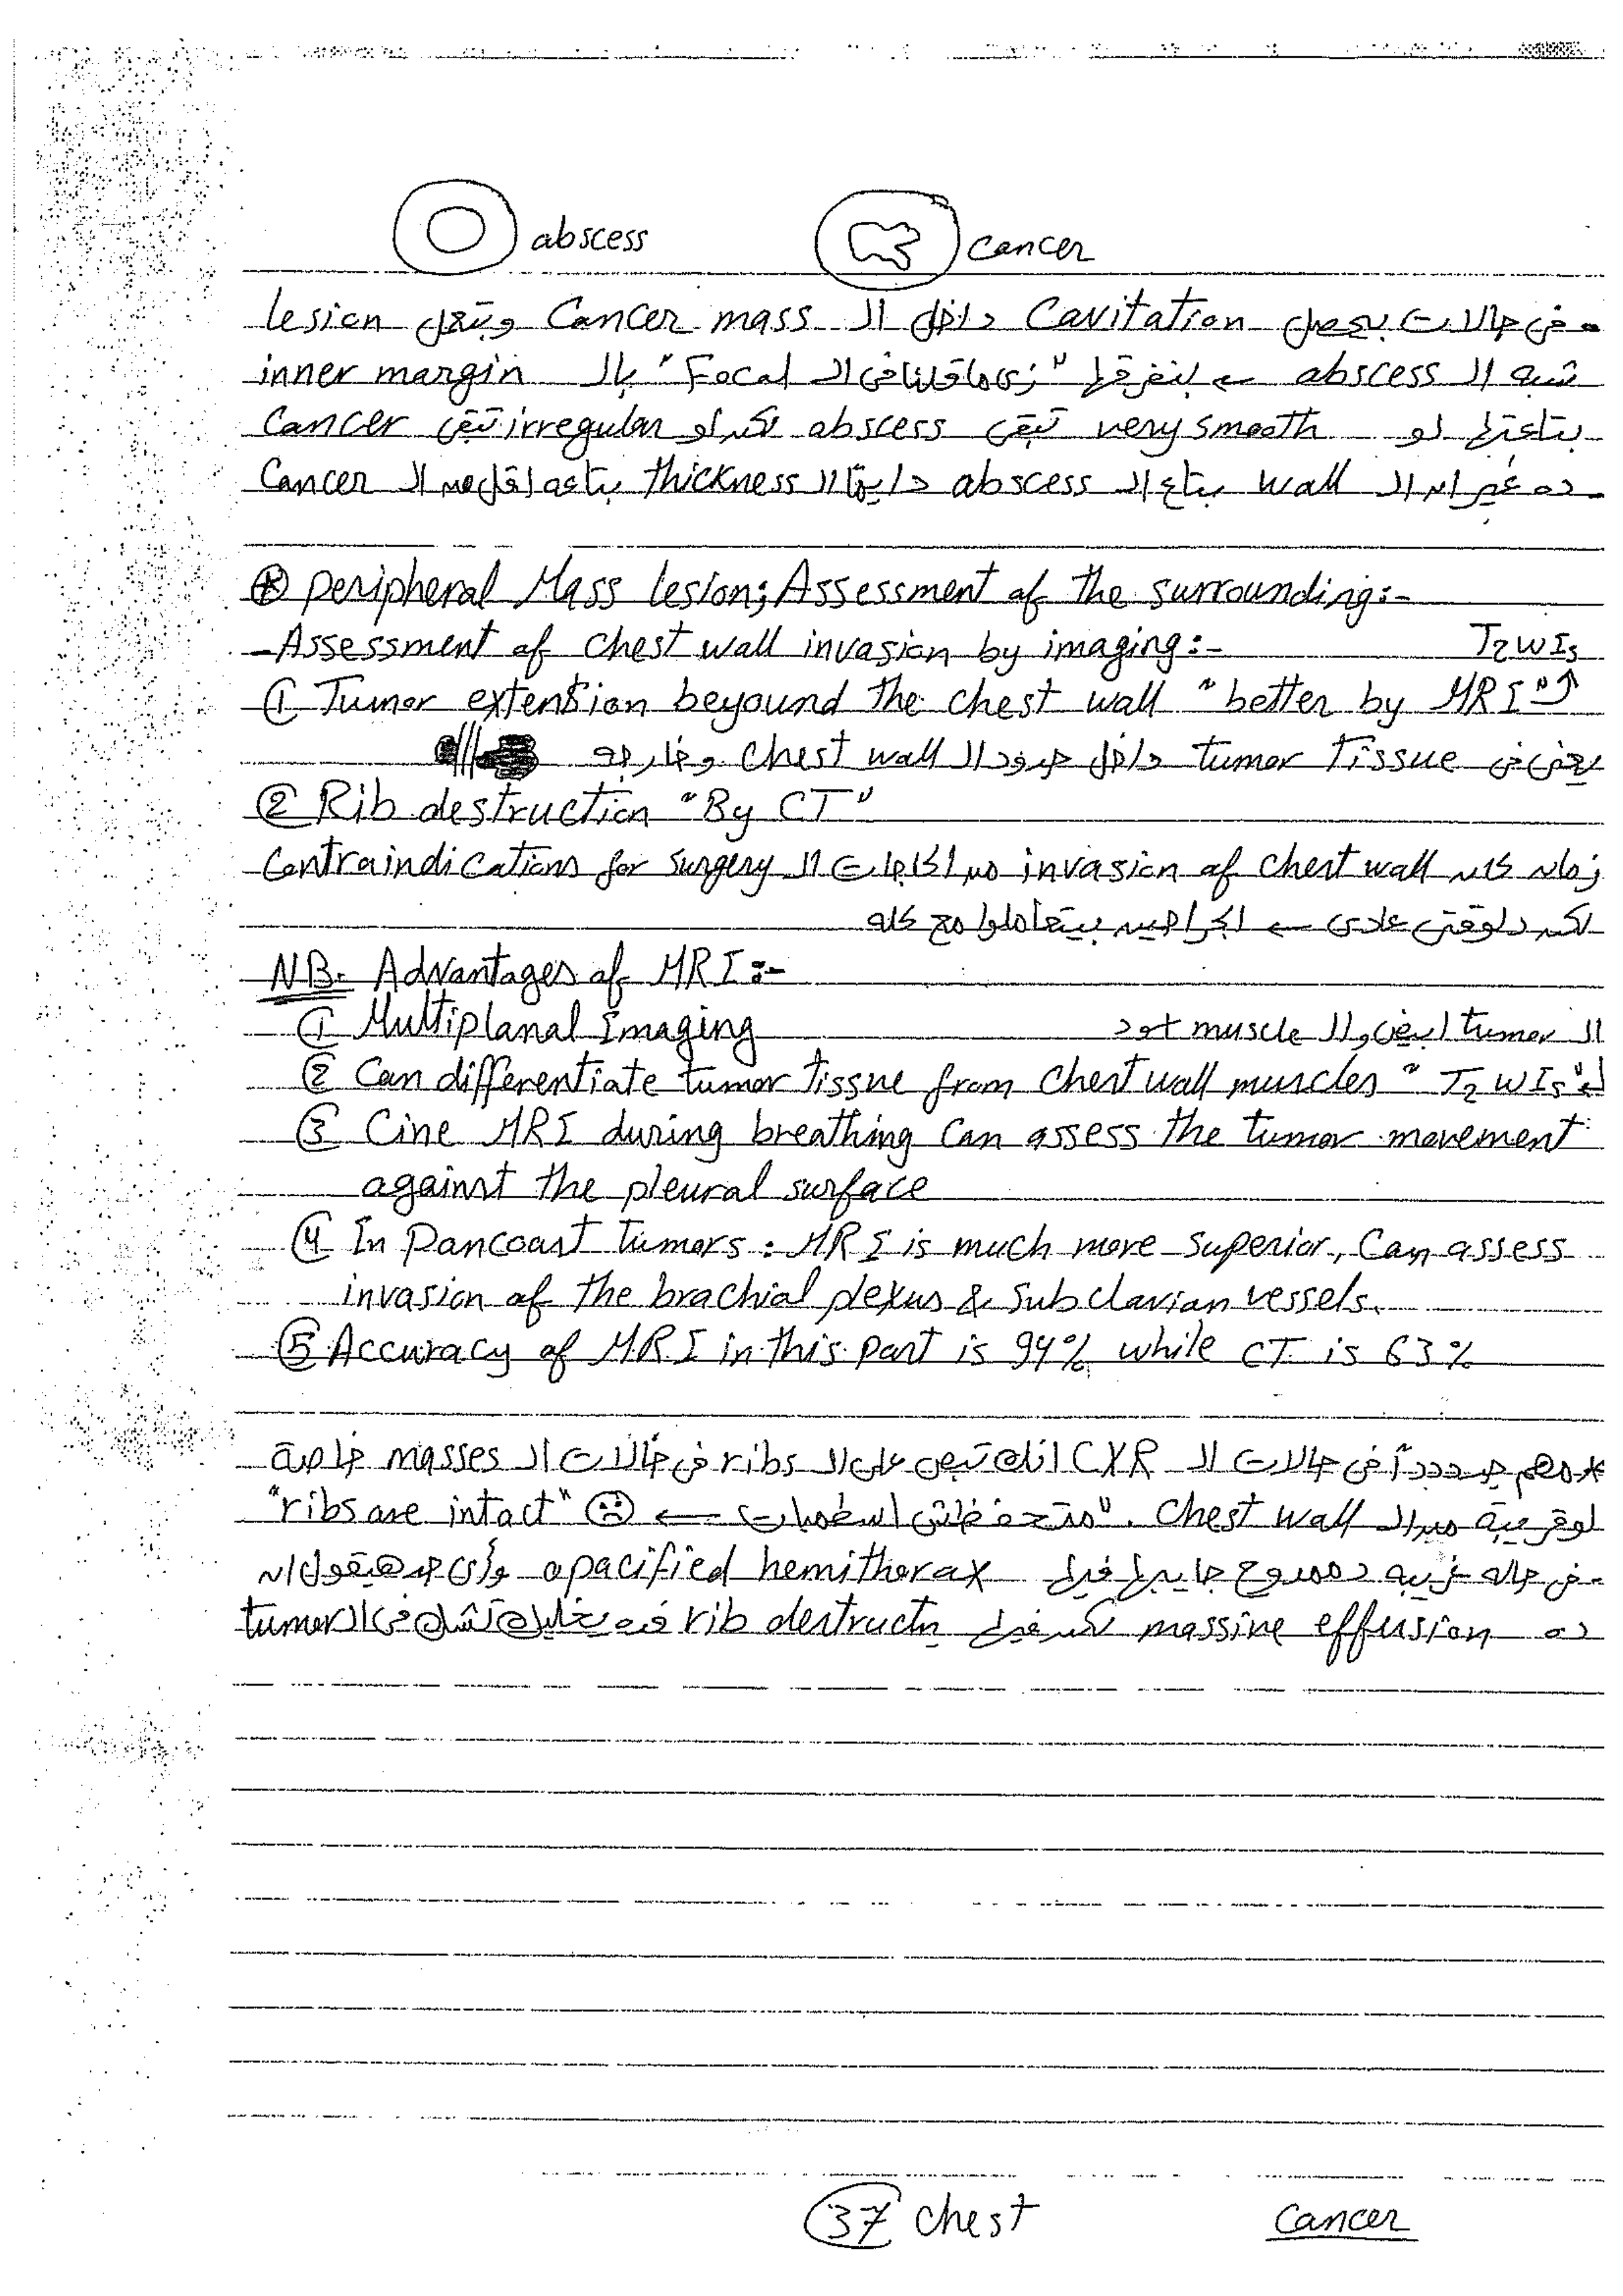 abscess cancer
- في حالات بيحصل Cavitation داخل الـ Cancer mass وبتعمل lesion
شبه الـ abscess ← بنفرقها "زي ما قولنا في الـ Focal" بالـ inner margin
بتاعتها لو very smooth تبقى abscess لكن لو irregular تبقى Cancer
- ده غير ان الـ wall بتاع الـ abscess دايما الـ thickness بتاعه اقل من الـ Cancer
⊛ Peripheral Mass lesion; Assessment of the surrounding:-
- Assessment of chest wall invasion by imaging:- T2WIs
① Tumor extension beyound the chest wall "better by MRI" ↑
يعني في tumor tissue داخل حدود الـ chest wall وخارجه
② Rib destruction "By CT"
زمان كان invasion of chest wall من الحاجات الـ Contraindications for surgery
لكن دلوقتي عادي ← الجراحين بيتعاملوا مع كله
NB. Advantages of MRI:-
① Multiplanal Imaging الـ tumor ابيض والـ muscle اسود
② Can differentiate tumor tissue from chest wall muscles "T2WIs"
③ Cine MRI during breathing can assess the tumor movement
against the pleural surface
④ In Pancoast tumors: MRI is much more superior, Can assess
invasion of the brachial plexus & subclavian vessels.
⑤ Accuracy of MRI in this part is 94% while CT is 63%
* مهم جدددآ في حالات الـ CXR انك تبص على الـ ribs في حالات الـ masses خاصة
لو قريبة من الـ chest wall. "متحفظش اسطمبات ← ☹ "ribs are intact"
- في حاله غريبه د ممدوح جايبها فيها opacified hemithorax وأي حد هيقول ان
ده massive effusion لكن فيها rib destructn فده يخليك تشك في الـ tumor
37 chest Cancer